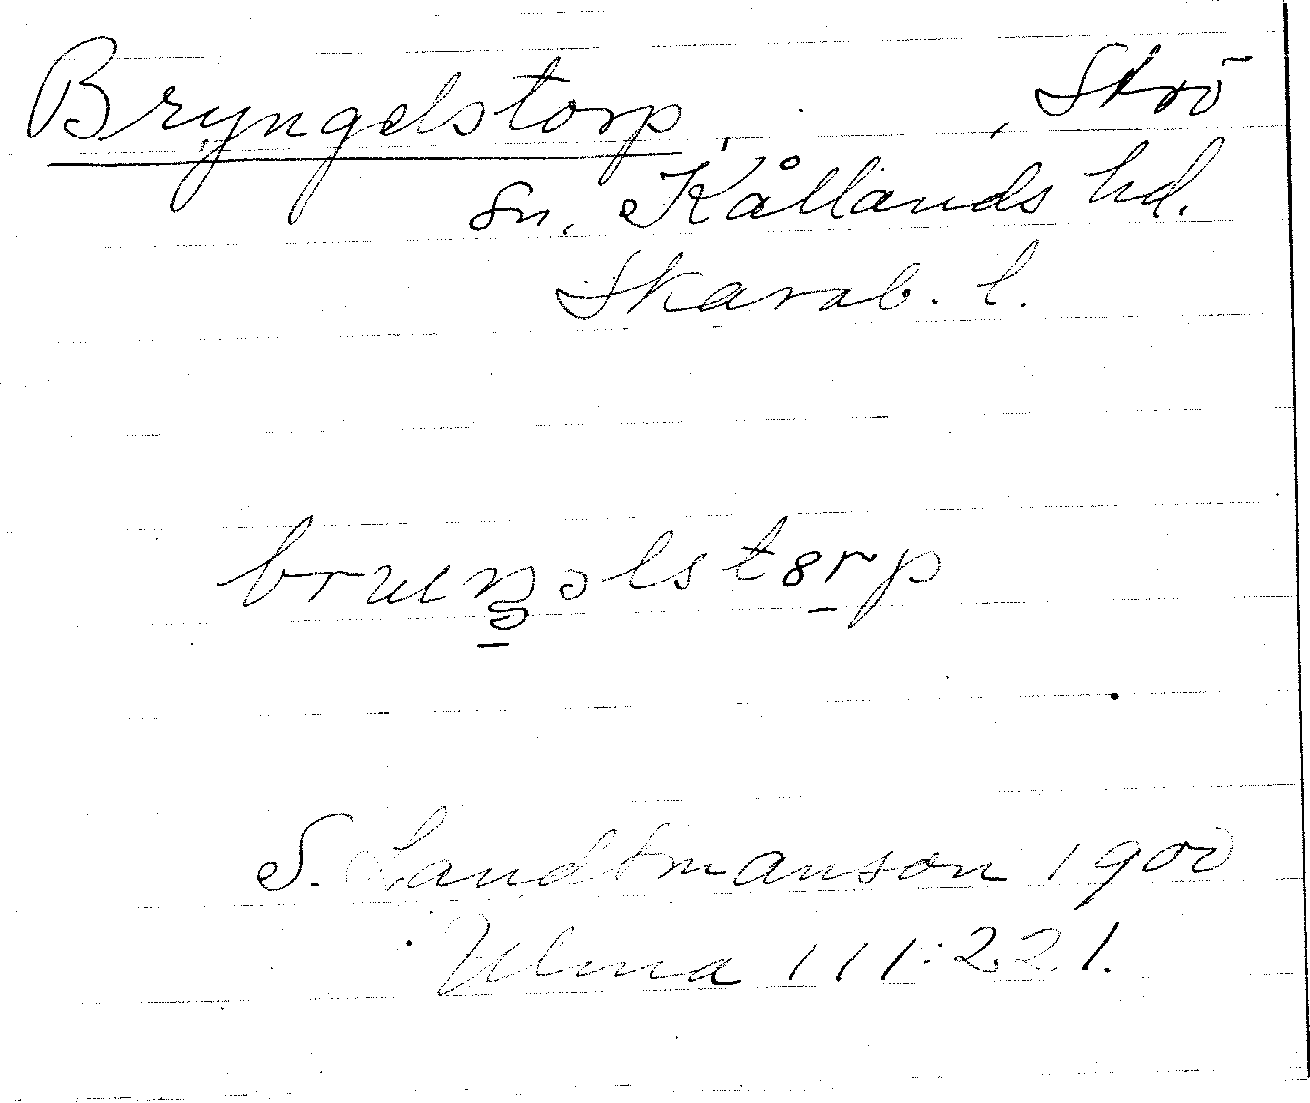 Bryngelstorp, Strö
sn. Kållands hd.
Skarab. l.
S. Landtmanson 1900
Ulma 111:221.